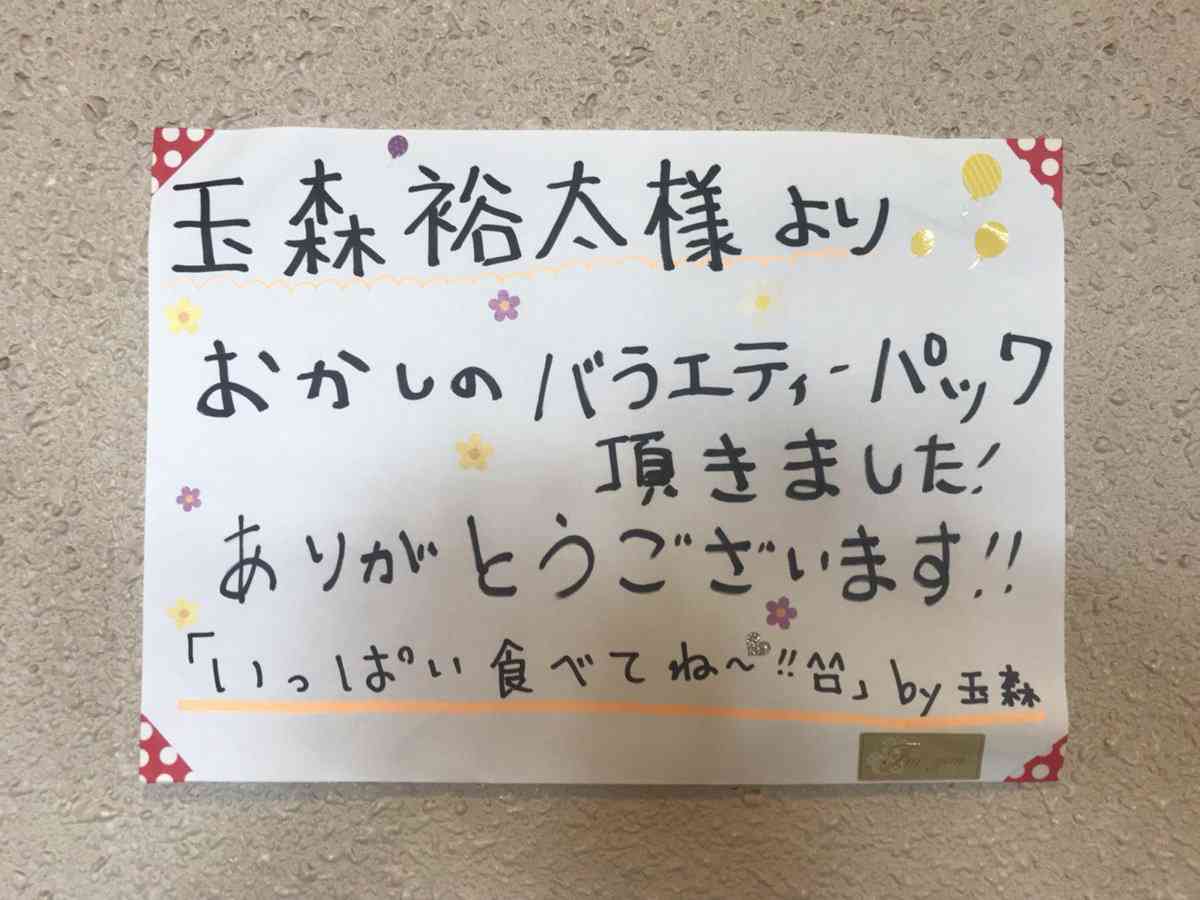 玉森裕太様より
おかしのバラエティーパック
頂きました!
ありがとうございます!!
「いっぱい食べてね〜!!^^」by 玉森
For you